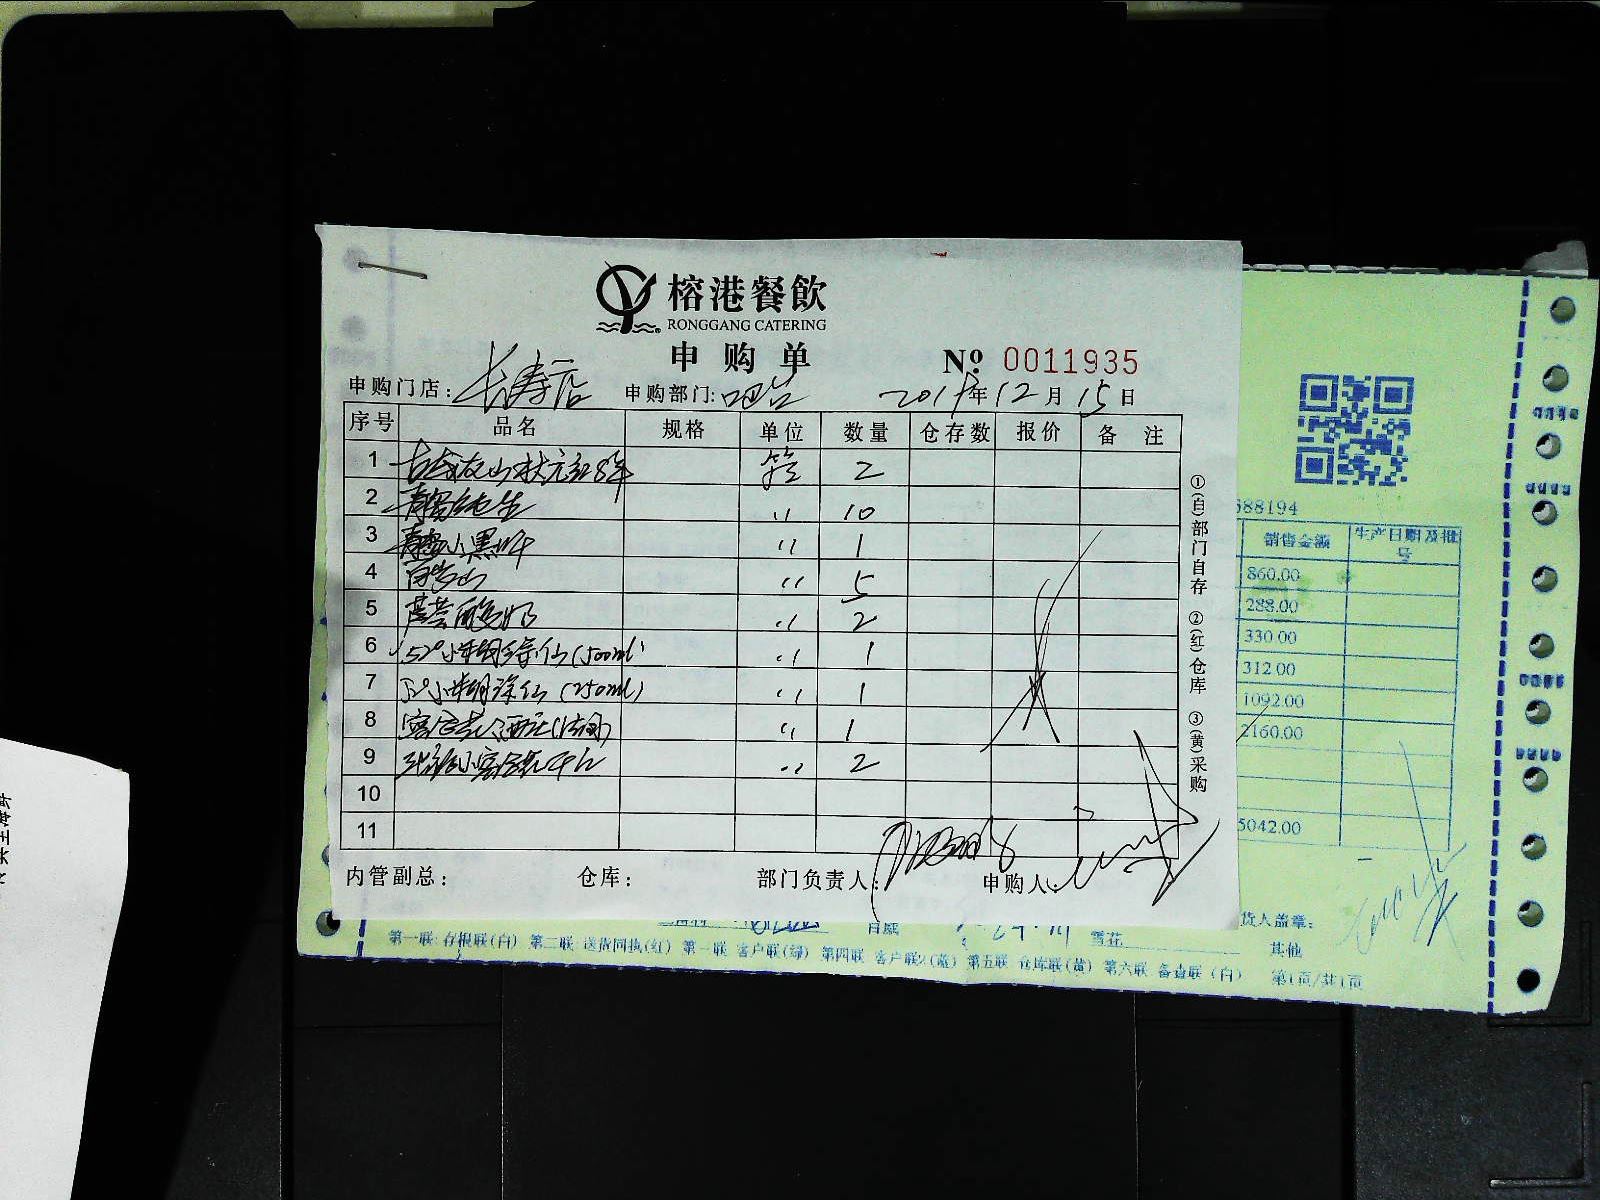 榕港餐飲
RONGGANG CATERING
申购单
№ 0011935
申购门店：长寿店 申购部门：吧台 2017年12月15日
序号 品名 规格 单位 数量 仓存数 报价 备注
1 状元红8年 箱 2
2 青岛纯生 〃 10
3 青岛小黑啤 〃 1
4 百岁山 〃 5
5 芦荟酸奶 〃 2
6 52°小糊涂仙(500ml) 〃 1
7 52°小糊涂仙(250ml) 〃 1
8 〃 1
9 〃 2
10
11
内管副总： 仓库： 部门负责人： 申购人：
①(白)部门自存 ②(红)仓库 ③(黄)采购
688194
销售金额 生产日期及批号
860.00
288.00
330.00
312.00
1092.00
2160.00
5042.00
货人盖章：
百威
雪花 其他
第一联 存根联(白) 第二联 送货回执(红) 第一联 客户联(绿) 第四联 客户联2(蓝) 第五联 仓库联(黄) 第六联 备查联(白) 第1页/共1页